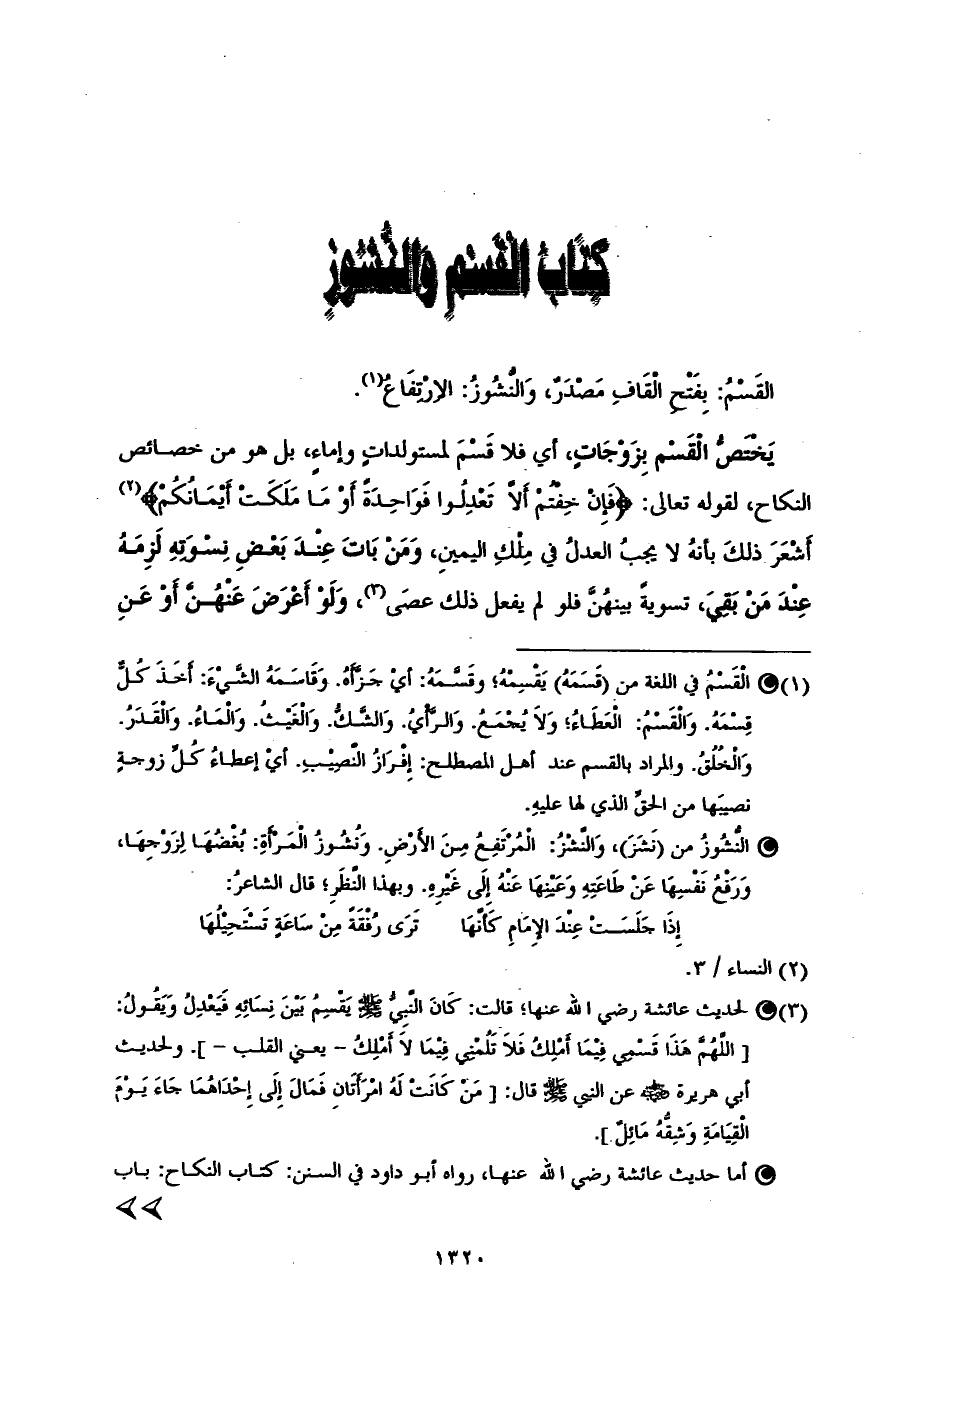 كِتَابُ الْقَسْمِ وَالنُّشُوزِ
القَسْمُ: بِفَتْحِ الْقَافِ مَصْدَرٌ، وَالنُّشُوزُ: الِارْتِفَاعُ(١).
يَخْتَصُّ الْقَسْم بِزَوْجَاتٍ، أي فلا قَسْمَ لمستولداتٍ وإماءٍ، بل هو من خصائص
النكاح، لقوله تعالى: ﴿فَإِنْ خِفْتُمْ أَلاَّ تَعْدِلُوا فَوَاحِدَةً أَوْ مَا مَلَكَتْ أَيْمَانُكُمْ﴾(٢)
أَشْعَرَ ذلكَ بأنهُ لا يجبُ العدلُ في مِلْكِ اليمينِ، وَمَنْ بَاتَ عِنْدَ بَعْضِ نِسْوَتِهِ لَزِمَهُ
عِنْدَ مَنْ بَقِيَ، تسويةً بينهُنَّ فلو لم يفعل ذلك عصَى(٣)، وَلَوْ أَعْرَضَ عَنْهُنَّ أَوْ عَنِ
(١) الْقَسْمُ في اللغة من (قَسَمَهُ) يَقْسِمُهُ؛ وقَسَّمَهُ: أيْ جَزَّأَهُ. وَقَاسَمَهُ الشَّيْءَ: أَخَذَ كُلٌّ
قِسْمَهُ. وَالْقَسْمُ: الْعَطَاءُ؛ وَلاَ يُجْمَعُ. وَالرَّأْيُ. وَالشَّكُّ. وَالْغَيْثُ. وَالْمَاءُ. وَالْقَدَرُ.
وَالْخُلُقُ. والمراد بالقسم عند أهل المصطلح: إِفْرَازُ النَّصِيْبِ. أيْ إعطاءُ كُلِّ زوجةٍ
نصيبَها من الحقِّ الذي لها عليهِ.
النُّشُوزُ من (نَشَزَ)، وَالنَّشْزُ: الْمُرْتَفِعُ مِنَ الأَرْضِ. وَنُشُوزُ الْمَرْأَةِ: بُغْضُهَا لِزَوْجِهَا،
وَرَفْعُ نَفْسِهَا عَنْ طَاعَتِهِ وَعَيْنِهَا عَنْهُ إِلَى غَيْرِهِ. وبهذا النَّظَرِ؛ قال الشاعرُ:
إِذَا جَلَسَتْ عِنْدَ الإِمَامِ كَأَنَّهَا تَرَى رُفْقَةً مِنْ سَاعَةٍ تَسْتَحِيْلُهَا
(٢) النساء / ٣.
(٣) لحديث عائشة رضي الله عنها؛ قالت: كَانَ النَّبِيُّ ﷺ يَقْسِمُ بَيْنَ نِسَائِهِ فَيَعْدِلُ وَيَقُولُ:
[ اللَّهُمَّ هَذَا قَسْمِي فِيْمَا أَمْلِكُ فَلاَ تَلُمْنِي فِيْمَا لاَ أَمْلِكُ – يعني القلب – ]. ولحديث
أبي هريرة ؓ عن النبي ﷺ قال: [ مَنْ كَانَتْ لَهُ امْرَأَتَانِ فَمَالَ إِلَى إِحْدَاهُمَا جَاءَ يَوْمَ
الْقِيَامَةِ وَشِقُّهُ مَائِلٌ ].
أما حديث عائشة رضي الله عنها، رواه أبو داود في السنن: كتاب النكاح: باب
١٣٢٠